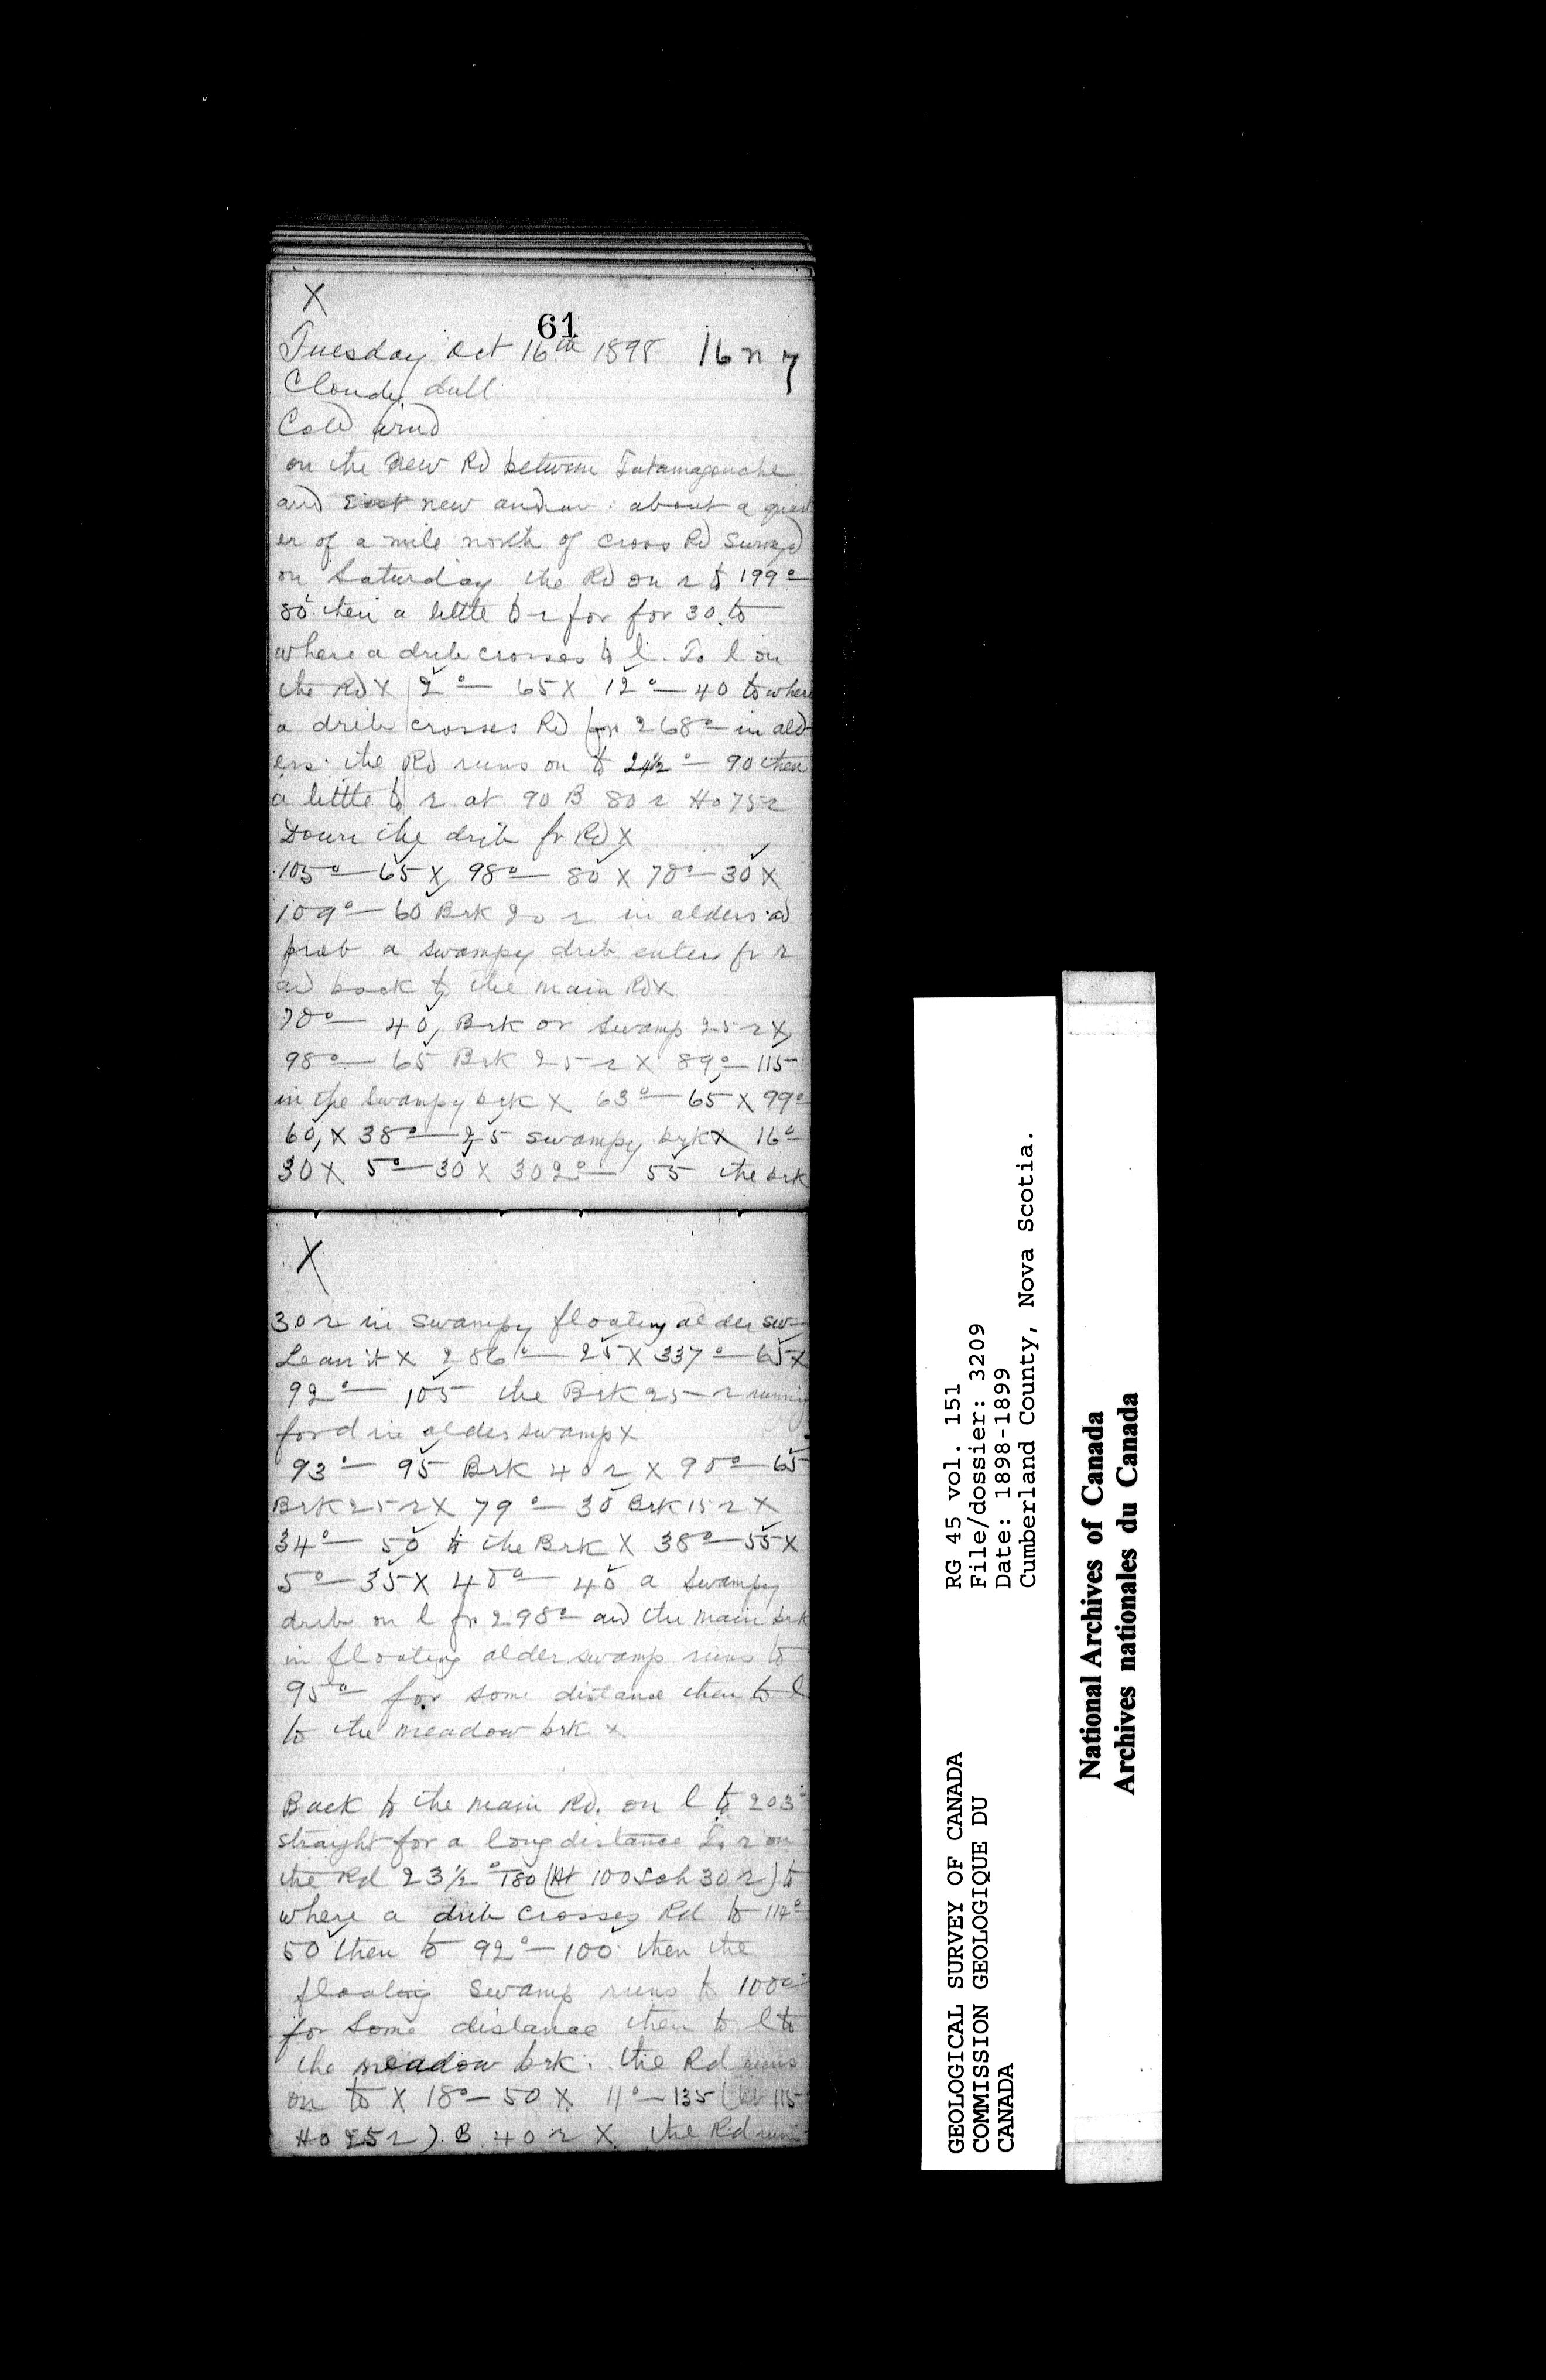 X
61
Tuesday Oct 16th 1898 16 n 7
Cloudy dull
Cold wind
on the new Rd between Tatamagouche
and East new annan : about a quart
er of a mile north of cross Rd Surveyd
on Saturday the Rd on r to 199°—
80 then a little to r for for 30 to
where a drib crosses to l. To l on
the Rd X 2°— 65 X 12°— 40 to where
a drib crosses Rd fr 268°— in ald
ers. the Rd runs on to 24½°— 90 then
a little to r at 90 B 80 r Ho 75 r
Down the drib fr Rd X
105°— 65 X 98°— 80 X 70°— 30 X
109°— 60 Brk 20 r in alders ad
prob a swampy drib enters fr r
ad back to the main Rd X
70°— 40, Brk or swamp 25 r X
98°— 65 Brk 25 r X 89°— 115
in the swampy brk X 63°— 65 X 99°—
60, X 38°— 25 swampy brk X 16°—
30 X 5°— 30 X 302°— 55 the brk
X
30 r in swampy floating alder sw—
Lean it X 286°— 25 X 337°— 65 X
92°— 105 the Brk 25 r running
ford in alder swamp X
93°— 95 Brk 40 r X 90°— 65
Brk 25 r X 79°— 30 Brk 15 r X
34°— 50 to the Brk X 38°— 55 X
5°— 35 X 40°— 40 a swampy
drib on l fr 298°— ad the main brk
in floating alder swamp runs to
95°— for some distance then to l
to the meadow brk X
Back to the main Rd. on l to 203°
straight for a long distance To r on
the Rd 23½° 180 (At 100 Sch 30 r) to
where a drib crosses Rd to 114°—
50 then to 92°— 100 then the
floating swamp runs to 100°—
for some distance then to l to
the meadow brk. the Rd runs
on to X 18°— 50 X 11°— 135 (At 115
Ho 25 r) B 40 r X the Rd runs
GEOLOGICAL SURVEY OF CANADA
COMMISSION GEOLOGIQUE DU
CANADA
RG 45 vol. 151
File/dossier: 3209
Date: 1898-1899
Cumberland County, Nova Scotia.
National Archives of Canada
Archives nationales du Canada